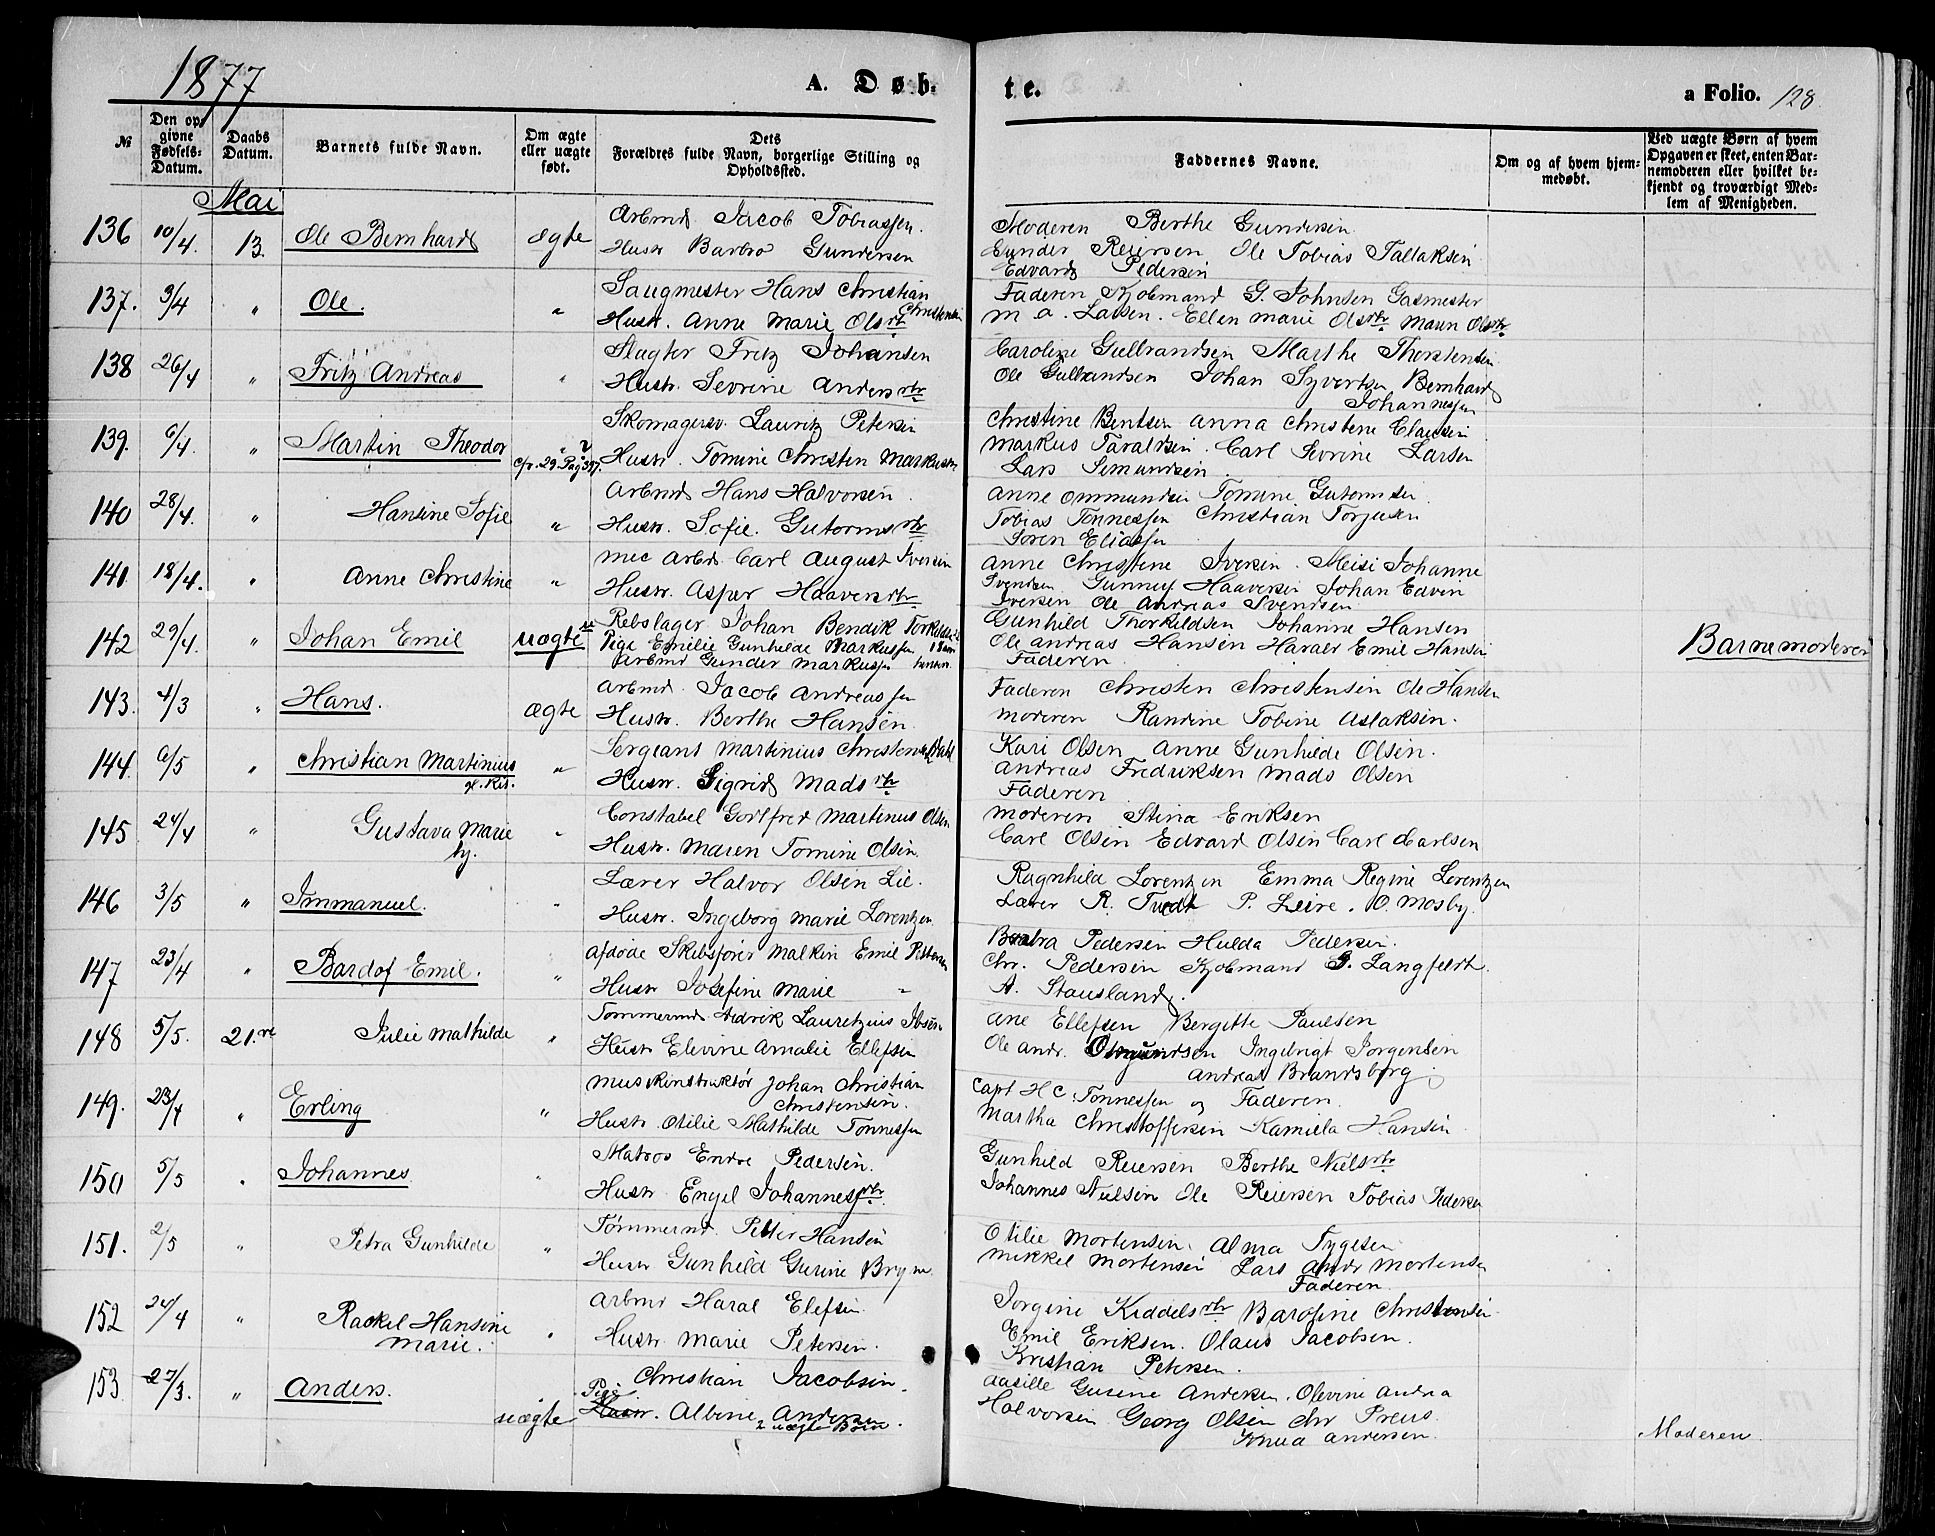 1877
A. Døb-
te.
a Folio. 128.
№
Den op-
givne
Fødsels-
Datum.
Daabs
Datum.
Barnets fulde Navn.
Om ægte
eller uægte
født.
Dets
Forældres fulde Navn, borgerlige Stilling og
Opholdssted.
Faddernes Navne.
Om og af hvem hjem-
medøbt.
Ved uægte Børn af hvem
Opgaven er skeet, enten Bar-
nemoderen eller hvilket be-
kjendt og troværdigt Med-
lem af Menigheden.
Mai
136 10/4. 13. Ole Bernhard ægte
Arbmd Jacob Tobiassen.
Hustr Barbro Gundersen
Moderen Berthe Gundersen
Gunder Reiersen Ole Tobias Tallaksen
Edvard Pedersen
137. 3/4 " Ole. "
Saugmester Hans Christian
Christensen
Hustr. Anne Marie Olsdtr
Faderen Kjøbmand G. Johnsen Gasmester
M A. Larsen. Ellen Marie Olsdtr Maren Olsdtr
138 26/4 " Fritz Andreas "
Slagter Fritz Johansen
Hustr. Sevrine Andersdtr
Caroline Gulbrandsen Marthe Thorstensen
Ole Gulbrandsen Johan Syvertsen Bernhard
Johannessen
139. 6/4 " Martin Theodor
cfr. 29. Pag 397.
Skomagersv. Lauritz Petersen
Hustr. Tomine Christen Markussen
Christine Bentsen Anna Christene Clausen
Markus Taraldsen. Carl Sevrine Larsen
Lars Semundsen
140 28/4. " Hansine Sofie "
Arbmd Hans Halvorsen.
Hustr. Sofie. Gutormsdtr
Anne Ommundsen Tomine Gutormsen
Tobias Tonnessen Christian Torjusen
Soren Eliassen
141. 18/4. " Anne Christine "
Mec Arbd. Carl August Iversen
Hustr. Asper Haaversdtr
Anne Christene Iversen. Meisi Johanne
Svendsen Gunney Haaversen Johan Edvin
Iversen Ole Andreas Svendsen
142 29/4. " Johan Emil uægte
Rebslager Johan Bendik Torkildsen
Pige Emilie Gunhilde Markussen
Arbmd Gunder Markussen
Gunhild Thorkildsen Johanne Hansen
Ole Andreas Hansen Harald Emil Hansen
Faderen.
Barnemoderen
143. 4/3 " Hans. ægte
Arbmd. Jacob Andreassen
Hustr. Berthe Hansen.
Faderen Christen Christensen Ole Hansen
Moderen Randine Tobine Aslaksen.
144. 6/5 " Christian Martinius "
Sergeant Martinius Christensen
Hustr. Sigrid Madsdtr
Kari Olsen Anne Gunhilde Olsen.
Andreas Fredriksen Mads Olsen
Faderen
145 24/4 " Gustava Marie "
by.
Constabel Godtfred Martinus Olsen
Hustr. Maren Tomine Olsen.
Moderen Stina Eriksen
Carl Olsen Edvard Olsen Carl Carlsen
146 3/5 " Immanuel. "
Lærer Halvor Olsen Lie.
Hustr. Ingeborg Marie Lorentzen
Ragnhild Lorentzen Emma Regine Lorentzen
Lærer R. Tvedt P. Leire. O. Mosby.
147 23/4 " Bardof Emil. "
Afdøde Skibsfører Malkin Emil Pettersen
Hustr Josefine Marie "
Barbra Pedersen Hulda Pedersen.
Chr. Pedersen Kjøbmand G. Langfeldt.
A. Stausland.
148 5/5. 21. Julie Mathilde "
Tommermd. Hedrik Lauretzius Ibsen
Hustr Elevine Amalie Ellefsen
Ane Ellefsen Bergitte Paulsen
Ole Andr. Omundsen Ingebrigt Jorgensen
Andreas Brandsborg.
149. 23/4 " Erling "
Musikinstruktør Johan Christian
Christensen.
Hustr. Otilie Mathilde Tonnessen
Capt H C. Tonnessen og Faderen.
Martha Christoffersen Kamilla Hansen
150 5/5 " Johannes "
Matros Endre Pedersen.
Hustr Engel Johannesdtr
Gunhild Reiersen Berthe Nielsdtr
Johannes Nielsen Ole Reiersen Tobias Pedersen
151. 2/5 " Petra Gunhilde "
Tømmermd. Petter Hansen
Hustr Gunhild Gurine Bryn.
Otilie Mortensen. Alma Tygesen
Mikkel Mortensen Lars Andr Mortensen
Faderen
152 24/4 " Rackel Hansine "
Marie.
Arbmd Haral Elefsen
Hustr Marie Petersen.
Jorgine Kiddelsdtr Barofine Christensen
Emil Eriksen. Olaus Jacobsen.
Kristian Petersen.
153. 27/3. " Anders. uægte
Christian Jacobsen.
Pige
Hustr. Albine Andersen.
2 uægte Børn.
Aasille Gurine Andersen. Olevine Andrea
Halvorsen Georg Olsen Chr Preus.
Knud Andersen.
Moderen